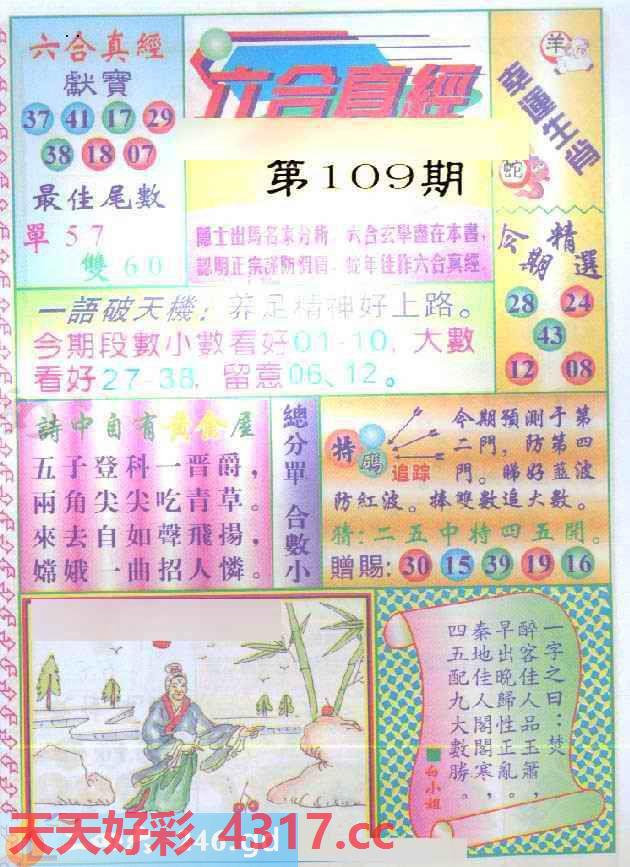 六合真經
獻寶
37 41 17 29
38 18 07
最佳尾數
單57
雙60
六合真經
第109期
隱士出馬名家分析，六合玄學盡在本書，
認明正宗謹防假冒，蛇年佳作六合真經
羊
幸運生肖
蛇
今期精選
28 24
43
12 08
一語破天機：养足精神好上路。
今期段數小數看好01-10，大數
看好27-38，留意06、12。
詩中自有黃金屋
五子登科一晋爵，
兩角尖尖吃青草。
來去自如聲飛揚，
嫦娥一曲招人憐。
總分單 合數小
特碼
追踪
今期預測于第
二門，防第四
門。睇好藍波
防紅波。捧雙數追大數。
猜：二五中特四五開。
贈賜：30 15 39 19 16
一字之曰：焚
醉客佳人品玉簫，
早出晚歸性正亂。
秦地佳人閣閣寒，
四五配九大數勝。
白小姐
天天好彩 4317.cc
46.gd